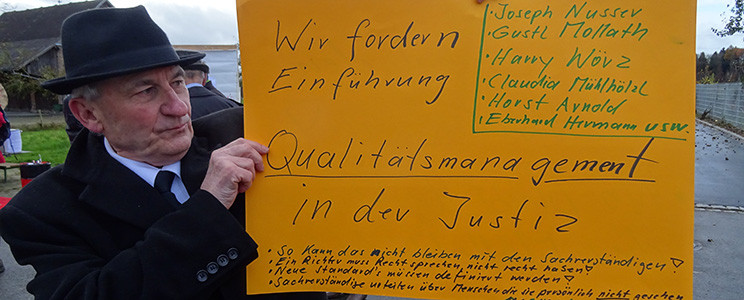 Wir fordern
Einführung
Qualitätsmanagement
in der Justiz
· Joseph Nusser
· Gustl Mollath
· Harry Wörz
· Claudia Mühlhölzl
· Horst Arnold
· Eberhard Herrmann usw.
· So kann das nicht bleiben mit den Sachverständigen!
· Ein Richter muss Recht sprechen, nicht recht haben!
· Neue Standard's müssen definiert werden!
· Sachverständige urteilen über Menschen die sie persönlich nicht gesehen